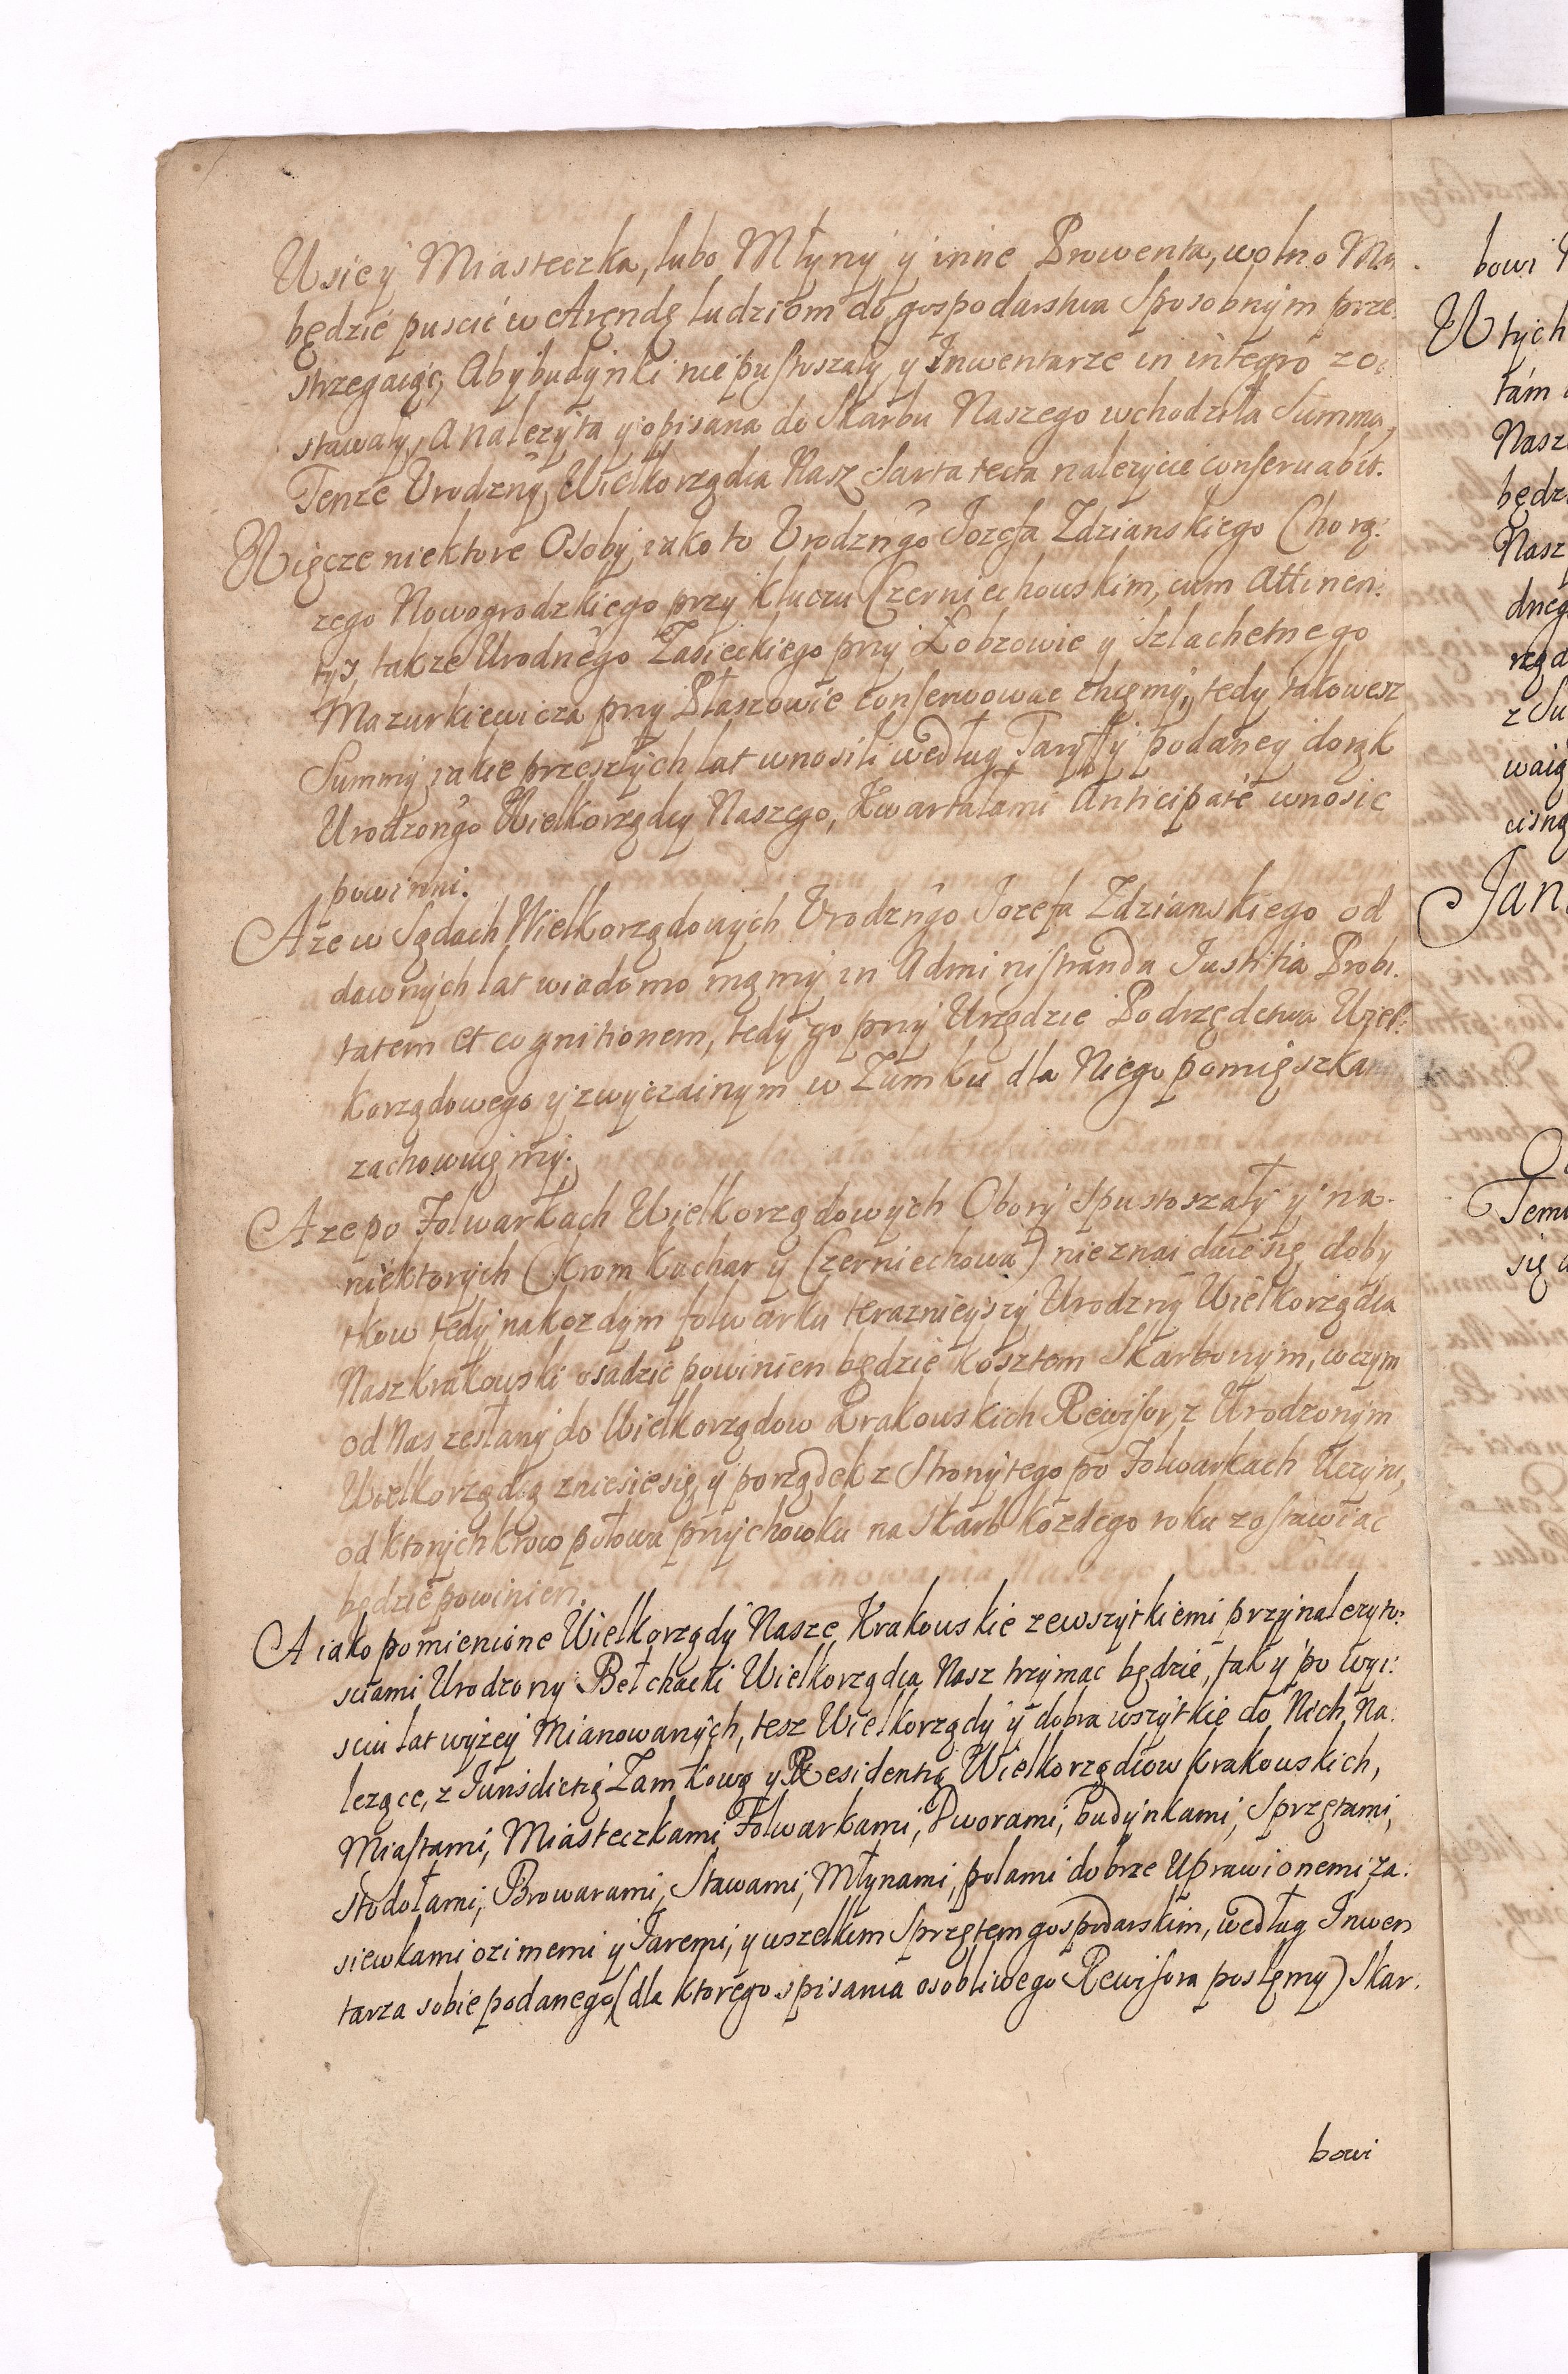 Wsie y Miasteczka, lubo Młyny y inne Prowenta, wolno Mu
będzie puscić w Arendę ludziom do gospodarstwa Sposobnym prze.
strzegaiąc, Aby budynki nie pustoszały y Inwentarze in integro zo
stawały, A należyta y opisana do Skarbu Naszego wchodziła Summa,
Tenze Urodzny Wielkorządca Nasz Sarta tecta nalezycie conseruabit.
Więcze niektore Osoby, iako to Urodzngo Jozefa Zdzianskiego Chorą:
zego Nowogrodzkiego przy kluczu Czerniechowskim, cum Attinen:
tys, takze Urodnego Zasieckiego przy Łobzowie y Szlachetnego
Mazurkiewicza przy Płaszowie conserwowac chcemy, tedy takowesz
Summy iakie przeszłych lat wnosili według Taryffy podaney do rąk
Urodzongo Wielkorządcy Naszego, Kwartałami Anticipate wnosic
powinni.
A ze w Sądach Wielkorządowych Urodzngo Jozefa Zdzianskiego od
dawnych lat wiadomo mamy in Administranda Justitia Probi.
tatem et cognitionem, tedy go przy Urzędzie Podrzędctwa Wiel:
korządowego y zwyczainym w Zamku dla Niego pomięszka
zachowuięmy.
A ze po Folwarkach Wielkorządowych Obory Spustoszały y na
niektorych (krom kuchar y Czerniechowa) nieznaiduie się doby
tkow tedy na kozdym folwarku terazniejszy Urodzny Wielkorządca
Nasz krakowski osadzić powinien będzie kosztem Skarbowym, w czym
od Nas zesłany do Wielkorządow Krakowskich Rewisor, z Urodzonym
Wielkorządcą zniesie się, y porządek z Strony tego po Folwarkach Uczyni,
od ktorych krow połowa przychowku na Skarb kozdego roku zostawiac
będzie powinien.
A iako pomienione Wielkorządy Nasze Krakowskie zewszytkiemi przynalezyto:
sciami Urodzony Bełchacki Wielkorządca Nasz trzymac będzie, tak y po wyi:
sciu lat wyzey Mianowanych, tesz Wielkorządy y dobra wszytkie do Nich Na:
lezące, z Jurisdictią Zamkową y Residentią Wielkorządcow krakowskich,
Miastami, Miasteczkami Folwarkami, Dworami, budynkami, Sprzętami,
Stodołami, Browarami, Stawami, Młynami, polami dobrze Uprawionemi za:
siewkami ozimemi y Jaremi, y wszelkim Sprzętem gospodarskim, według Inwen
tarza sobie podanego (dla ktorego spisania osobliwego Rewisora poslemy) Skar.
bowi
bowi
W tych
tám
Nasz
będz
Nasz
dneg
rząd
z Su
waią
cisną
Jan
Temu
się